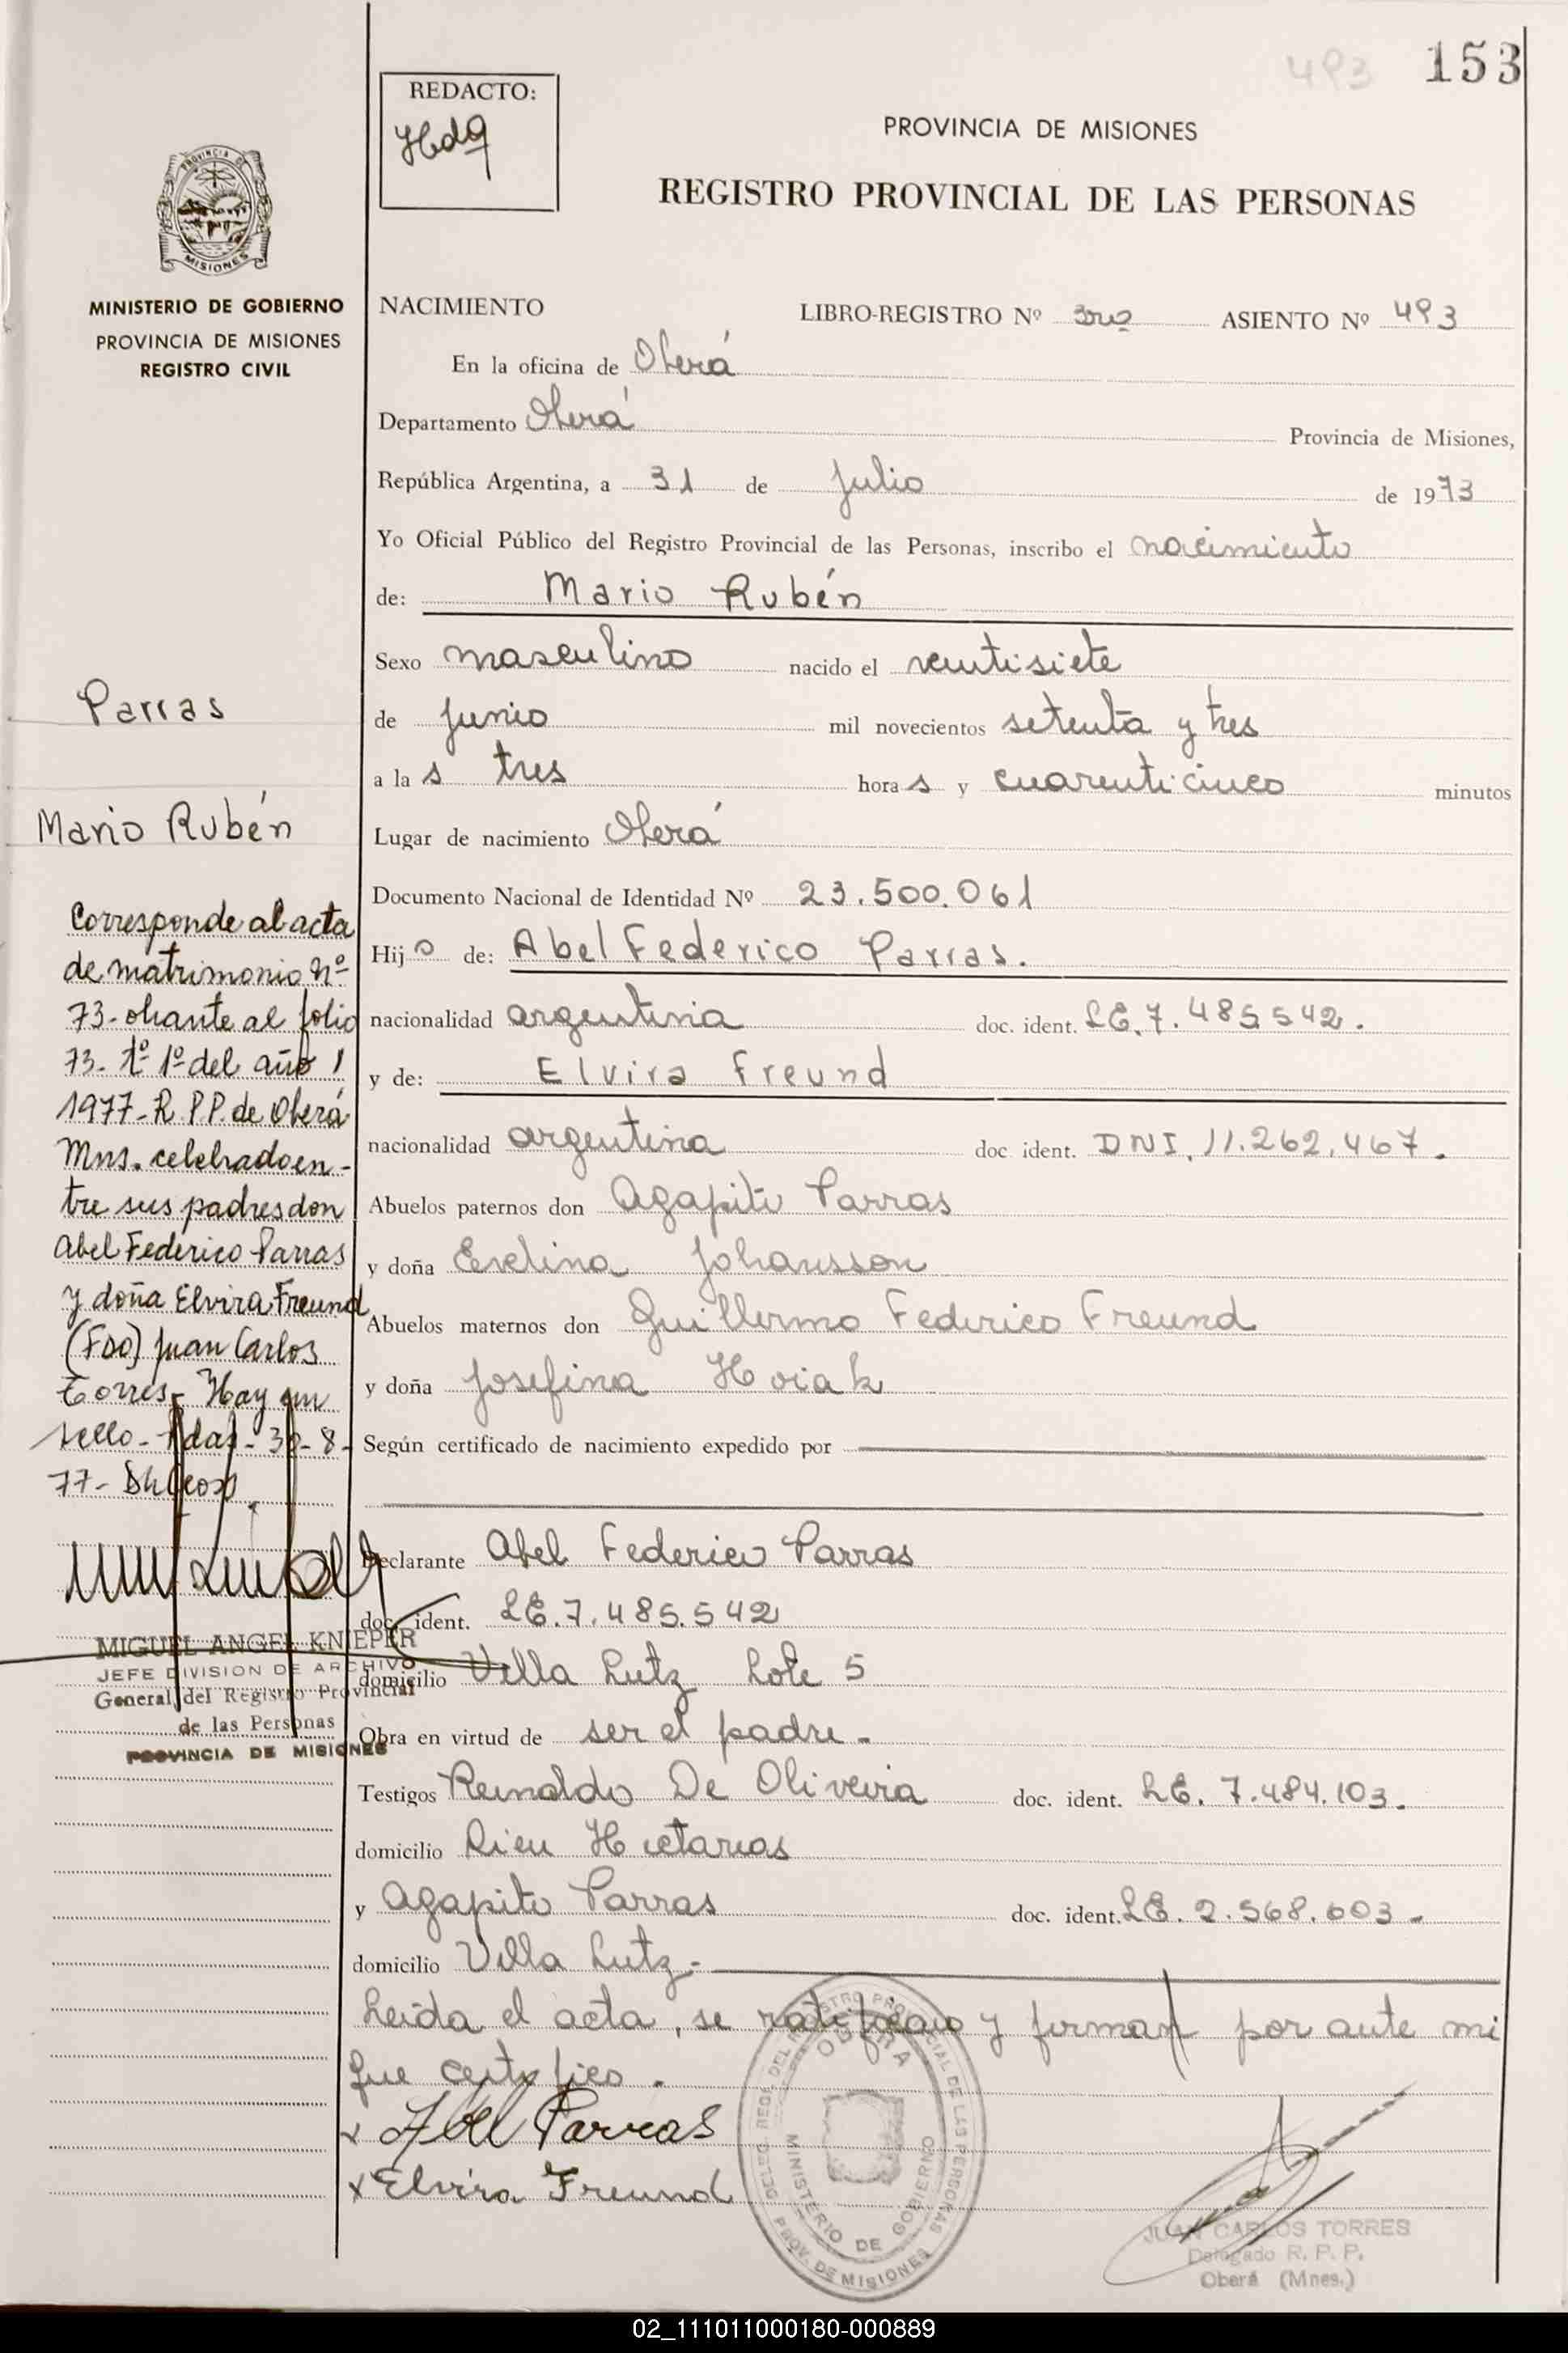 493 153
REDACTO:
PROVINCIA DE MISIONES
REGISTRO PROVINCIAL DE LAS PERSONAS
PROVINCIA DE
MISIONES
MINISTERIO DE GOBIERNO
PROVINCIA DE MISIONES
REGISTRO CIVIL
Parras
Mario Rubén
Corresponde al acta
de matrimonio Nº
73- obrante al folio
73- tº 1º del año
1977- R.P.P. de Oberá
Mns. celebrado en-
tre sus padres don
Abel Federico Parras
y doña Elvira Freund
(FDO) Juan Carlos
Torres- Hay un
sello- Pdas- 30-8-
77-
MIGUEL ANGEL KNIEPER
JEFE DIVISION DE ARCHIVO
General del Registro Provincial
de las Personas
PROVINCIA DE MISIONES
NACIMIENTO LIBRO-REGISTRO Nº 3ro ASIENTO Nº 493
En la oficina de Oberá
Departamento Oberá Provincia de Misiones,
República Argentina, a 31 de Julio de 1973
Yo Oficial Público del Registro Provincial de las Personas, inscribo el nacimiento
de: Mario Rubén
Sexo masculino nacido el veintisiete
de junio mil novecientos setenta y tres
a la s tres hora s y cuarenticinco minutos
Lugar de nacimiento Oberá
Documento Nacional de Identidad Nº 23.500.061
Hij o de: Abel Federico Parras.
nacionalidad argentina doc. ident. LE. 7.485.542.
y de: Elvira Freund
nacionalidad argentina doc. ident. DNI. 11.262.467.
Abuelos paternos don Agapito Parras
y doña Evelina Johansson
Abuelos maternos don Guillermo Federico Freund
y doña Josefina Hoiak
Según certificado de nacimiento expedido por
Declarante Abel Federico Parras
doc. ident. LE. 7.485.542
domicilio Villa Lutz Lote 5
Obra en virtud de ser el padre.
Testigos Reinaldo De Oliveira doc. ident. LE. 7.484.103.
domicilio Cien Hectareas
y Agapito Parras doc. ident. LE. 2.568.603-
domicilio Villa Lutz-
Leida el acta, se ratifican y firman por ante mi
que certifico.
x Abel Parras
x Elvira Freund
DELEG. REGI. DEL REGISTRO PROVINCIAL DE LAS PERSONAS
OBERA
MINISTERIO DE GOBIERNO
PROV. DE MISIONES
JUAN CARLOS TORRES
Delegado R. P. P.
Oberá (Mnes.)
02_111011000180-000889